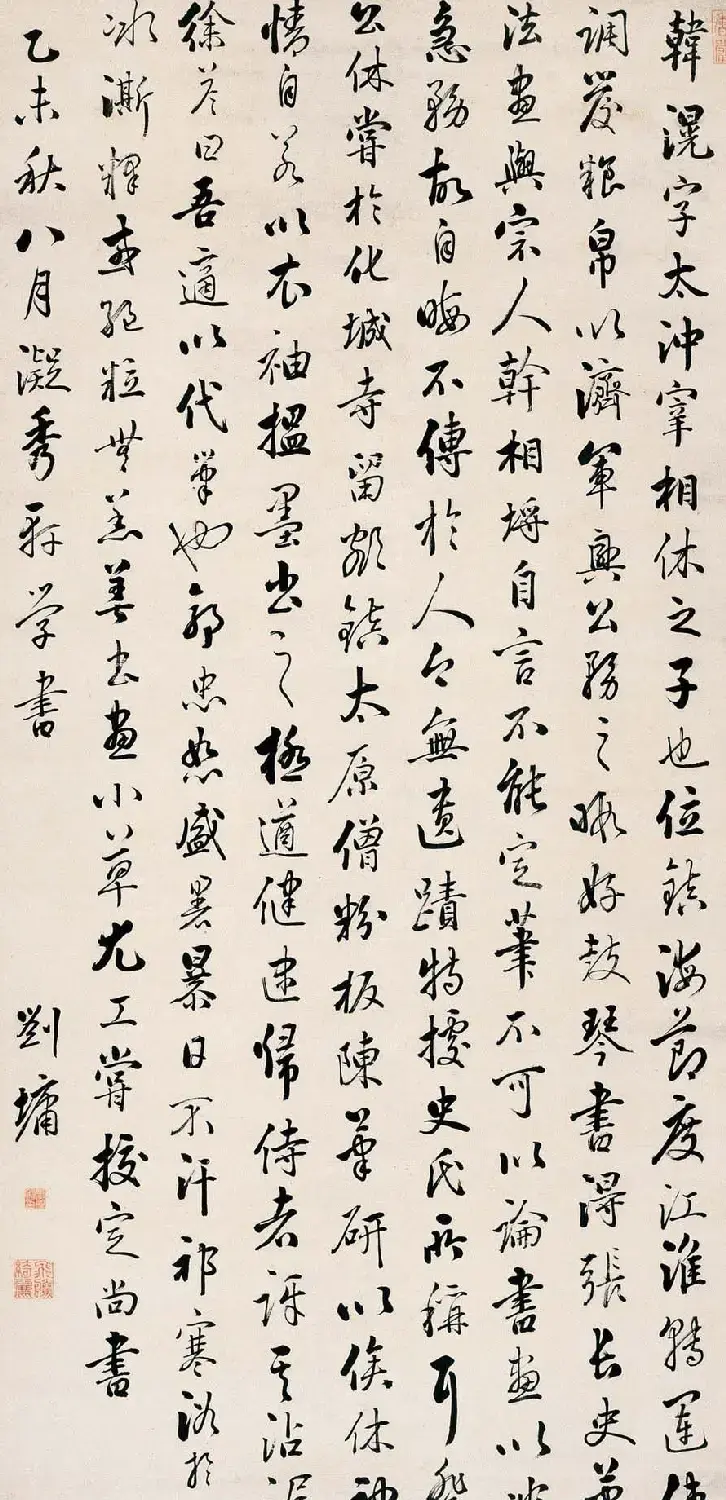 韓滉字太沖宰相休之子也位鎮海節度江淮轉運使
調發粮帛以濟軍興公務之暇好鼓琴書得張長史草
法畫與宗人幹相埒自言不能定筆不可以論書畫以非
急務故自晦不傳於人今無遺蹟特據史氏所稱耳裴
公休嘗於化城寺留題鎮太原僧粉板陳筆研以俟休神
情自若以衣袖搵墨書之極遒健逮歸侍者訝其沾渥
徐答曰吾適以代筆也郭忠恕盛暑暴日不汗祁寒浴於
冰澌釋或絕粒無羔善書畫小草尤工嘗挍定尚書
乙未秋八月凝秀軒學書
劉墉